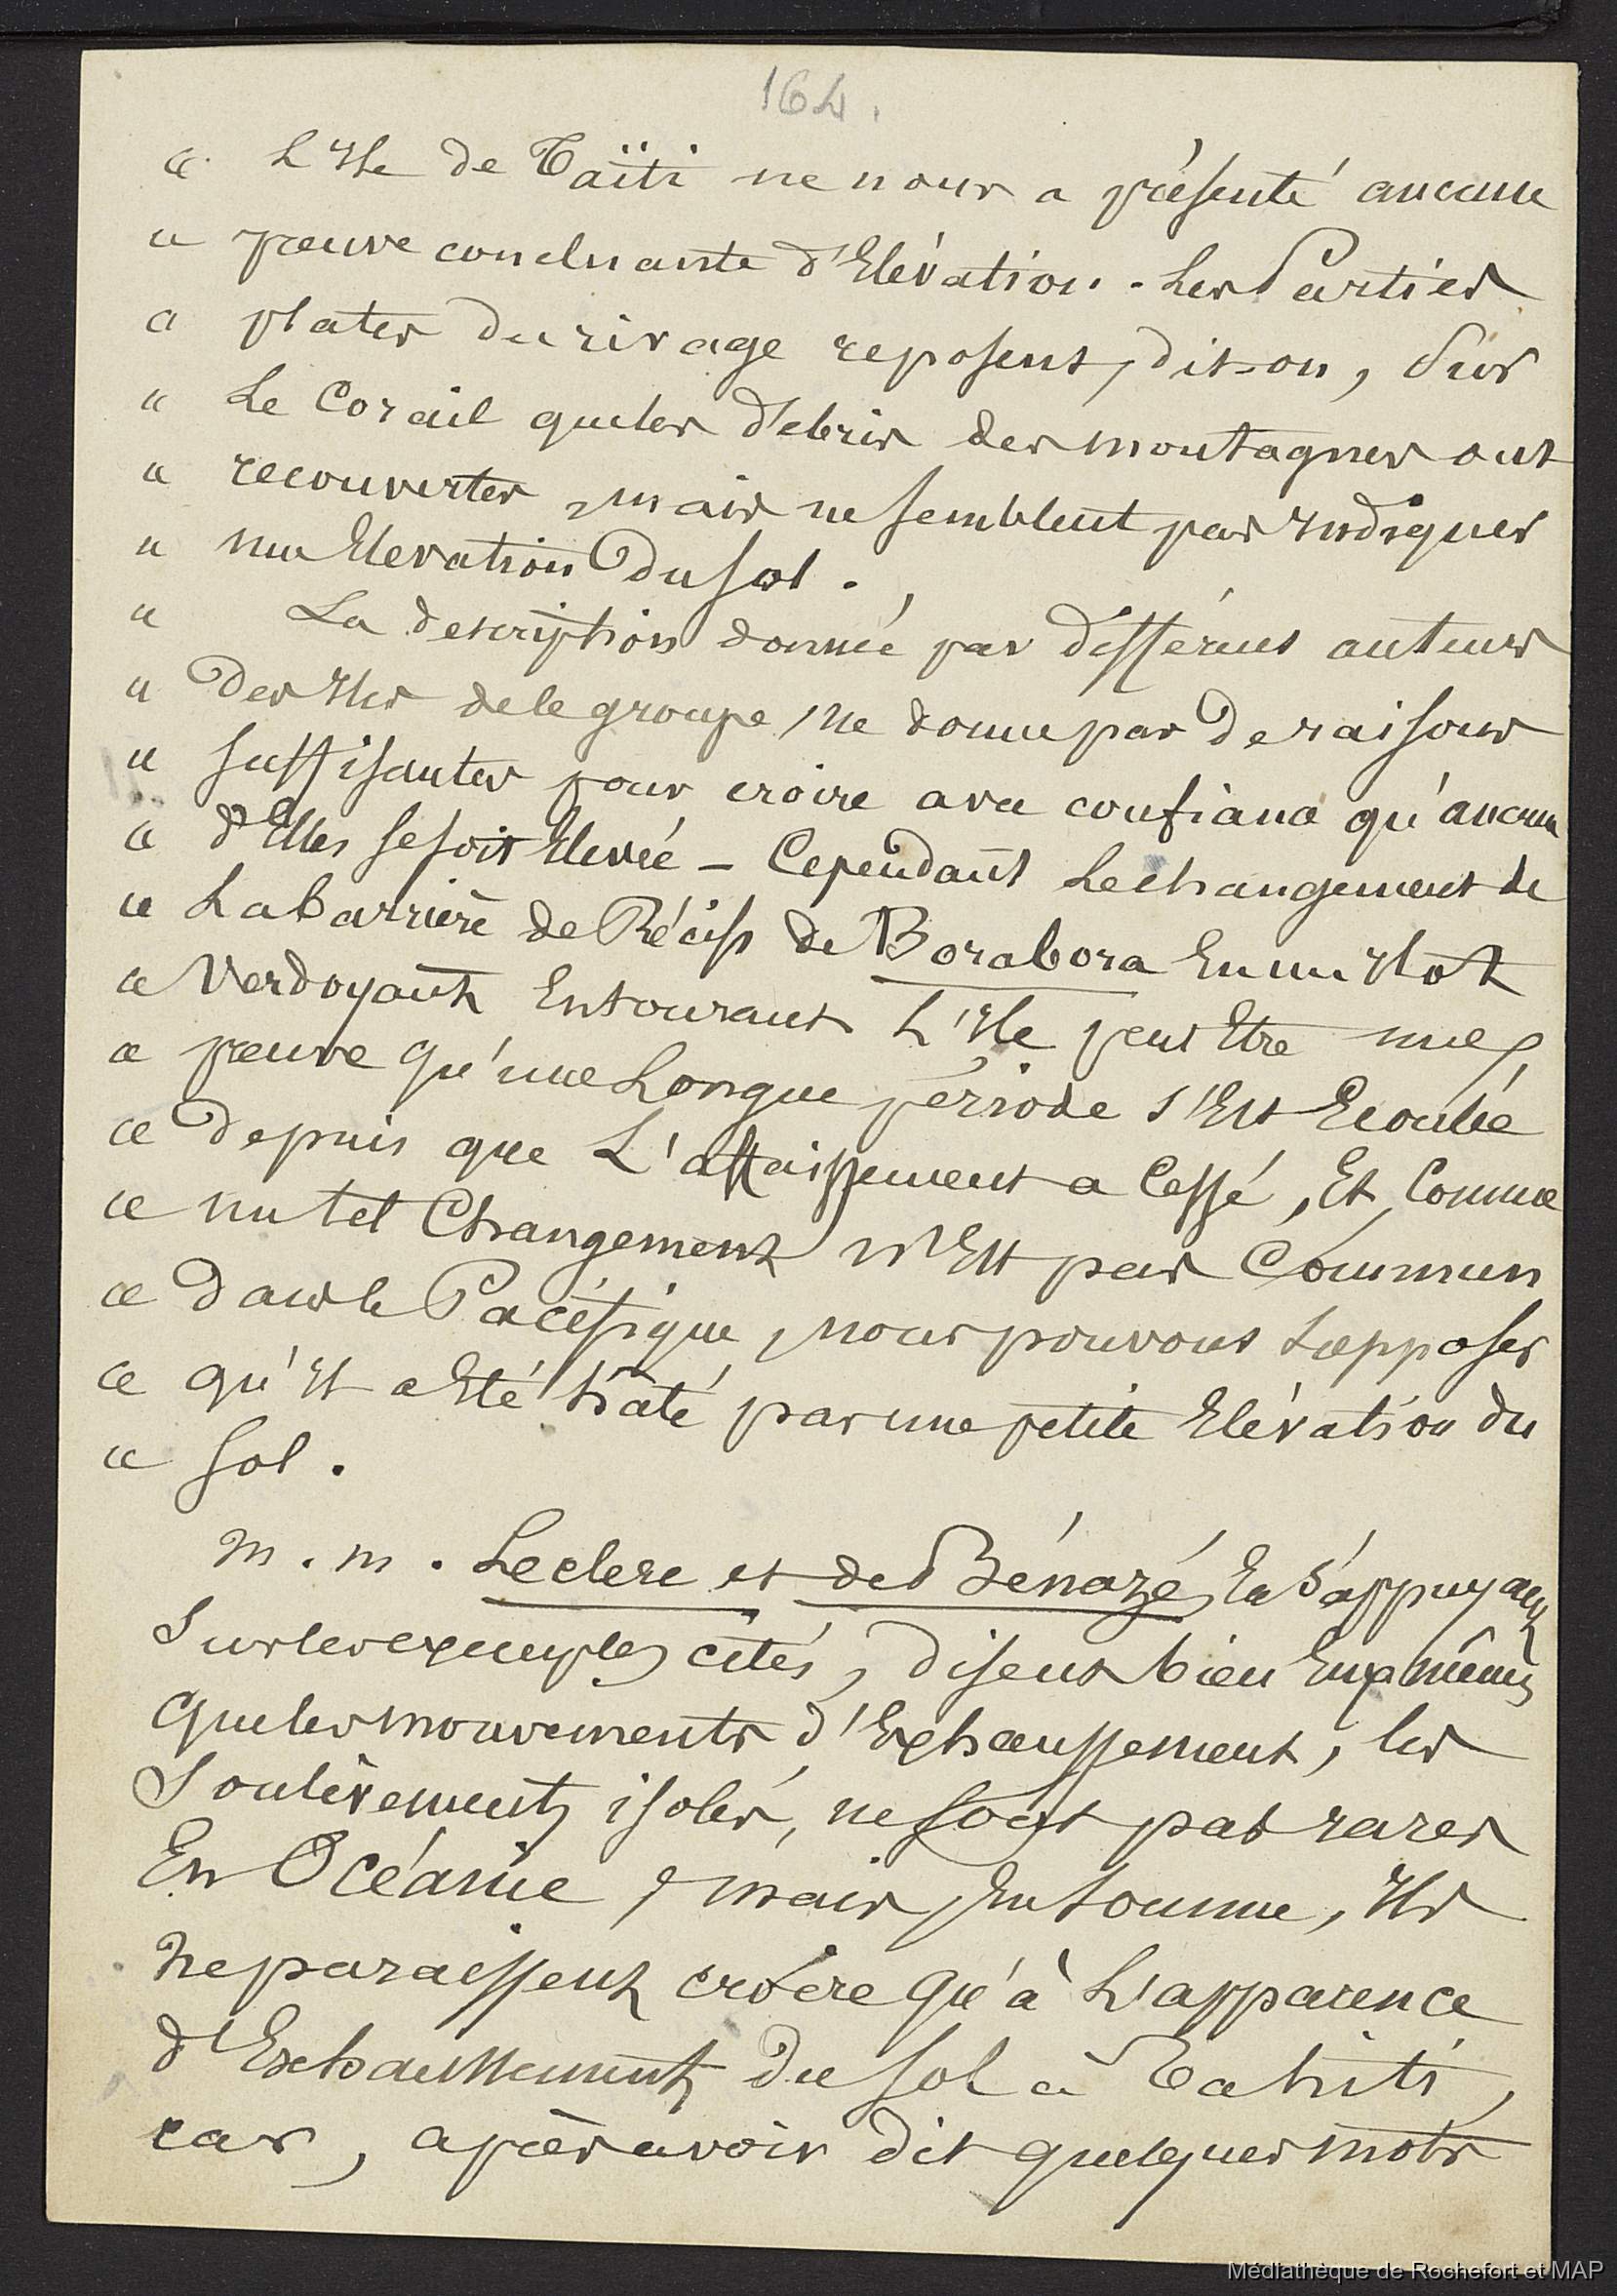 164.
« L'Ile de Taïti ne nous a présenté aucune
« preuve concluante d'Elévation. Les Parties
« plates du rivage reposent, dit-on, Sur
« Le Corail que les débris des montagnes ont
« recouvertes, mais ne semblent pas Indiquer
« une Elevation du sol.
« La description donnée par différents auteurs
« Des Iles de le groupe, ne donne pas De raisons
« suffisantes pour croire avec confiance qu'aucune
« d'Elles se soit Elevée – Cependant Le changement de
« La barrière de Récifs de Borabora En un Ilot
« Verdoyant Entourant L'Ile peut Etre une
« preuve qu'une Longue période s'Est Ecoulée
« Depuis que L'affaissement a Cessé, Et Comme
« un tel Changement n'Est pas Commun
« Dans le Pacifique, nous pouvons supposer
« qu'Il a Eté hâté par une petite Elévation du
« sol.
M. M. Leclerc et de Bénazé, En s'appuyant
Sur les exemples cités, disent bien Eux mêmes
Que les mouvements d'Exhaussement, les
Soulèvements isolés, ne sont pas rares
En Océanie, mais, En somme, Ils
ne paraissent croire qu'à L'apparence
d'Exhaussement Du sol à Tahiti,
car, après avoir dit quelques mots
Médiathèque de Rochefort et MAP